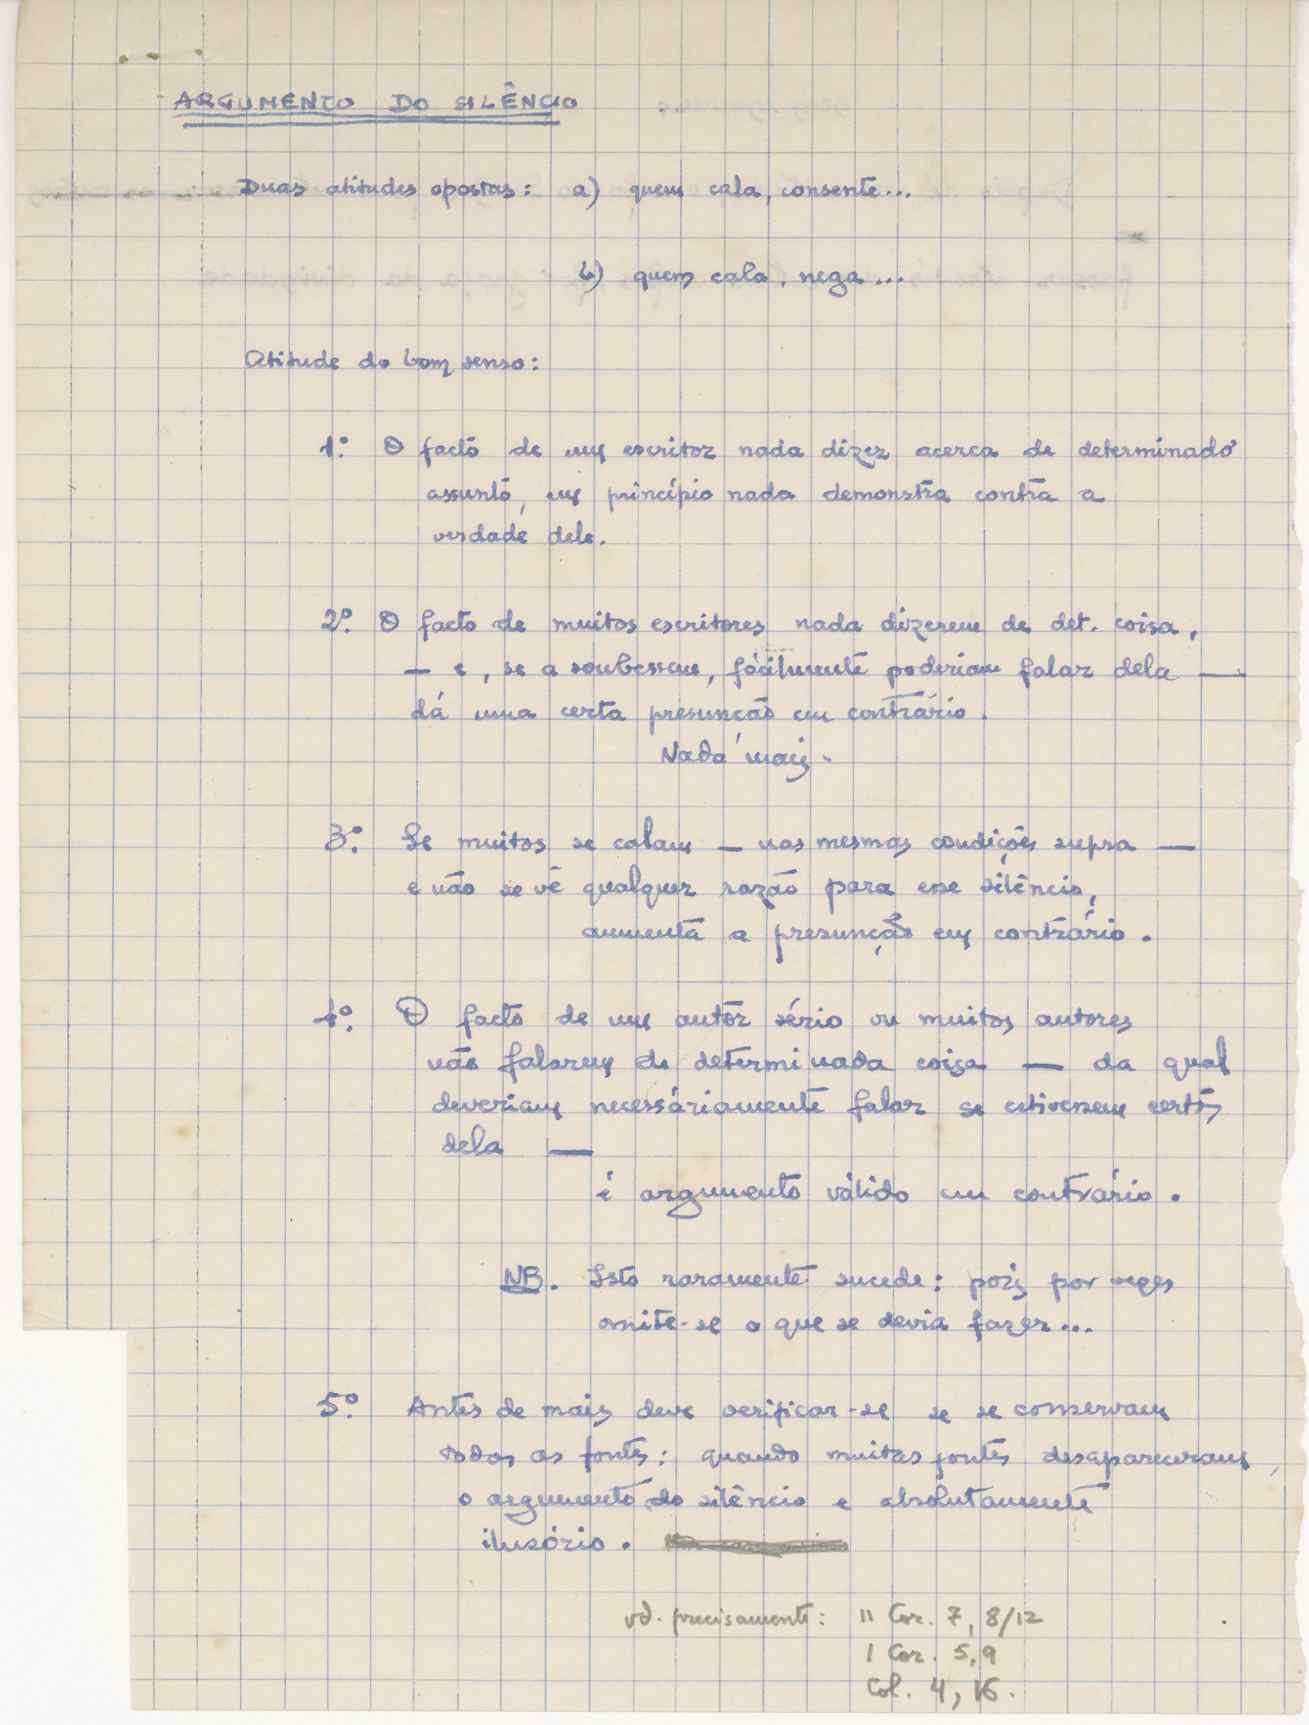 ARGUMENTO DO SILÊNCIO
Duas atitudes opostas: a) quem cala, consente...
b) quem cala, nega...
Atitude do bom senso:
1º. O facto de um escritor nada dizer acerca de determinado
assunto, em princípio nada demonstra contra a
verdade dele.
2º. O facto de muitos escritores nada dizerem de det. coisa,
— e, se a soubessem, fàcilmente poderiam falar dela —
dá uma certa presunção em contrário.
Nada mais.
3º. Se muitos se calam — nas mesmas condições supra —
e não se vê qualquer razão para esse silêncio,
aumenta a presunção em contrário.
4º. O facto de um autor sério ou muitos autores
não falarem de determinada coisa — da qual
deveriam necessàriamente falar se estivessem certos
dela —
é argumento válido em contrário.
NB. Isto raramente sucede: pois por vezes
omite-se o que se devia fazer...
5º. Antes de mais deve verificar-se se se conservam
todas as fontes: quando muitas fontes desapareceram,
o argumento do silêncio é absolutamente
ilusório.
vd. precisamente: II Cor. 7, 8/12
I Cor. 5,9
Col. 4, 16.